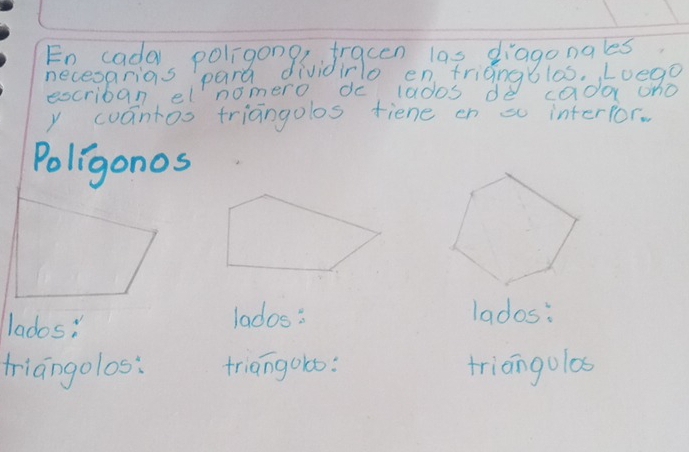 En cada polígono, tracen las diagonales
necesarias para dividirlo en triángulos. Luego
escriban el número de lados de cada uno
y cuántos triángulos tiene en su interior.
Polígonos
lados:
lados:
lados:
triángolos:
triángolos:
triángulos